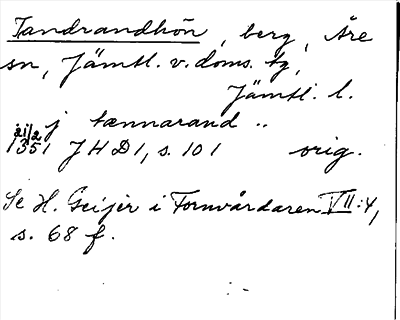 Tandrandhön, berg, Åre
sn, Jämtl. v. doms. tg,
Jämtl. l.
j tænnarand ..
21/2 1351 JHD 1, s. 101 orig.
Se H. Geijer i Fornvårdaren VII:4,
s. 68 f.